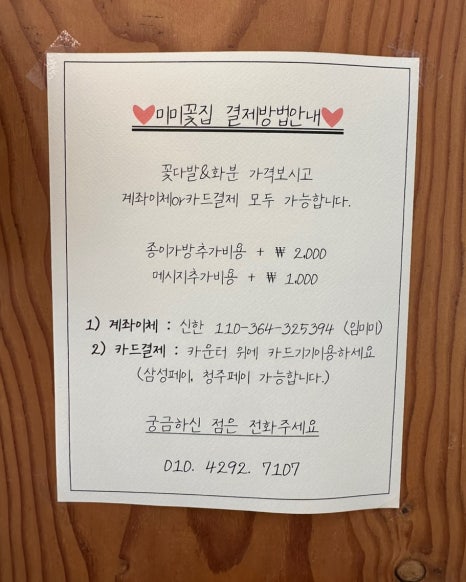 미미꽃집 결제방법안내
꽃다발&화분 가격보시고
계좌이체or카드결제 모두 가능합니다.
종이가방추가비용 + ₩ 2,000
메시지추가비용 + ₩ 1,000
1) 계좌이체 : 신한 110-364-325394 (임미미)
2) 카드결제 : 카운터 위에 카드기기이용하세요
(삼성페이, 청주페이 가능합니다.)
궁금하신 점은 전화주세요
010. 4292. 7107